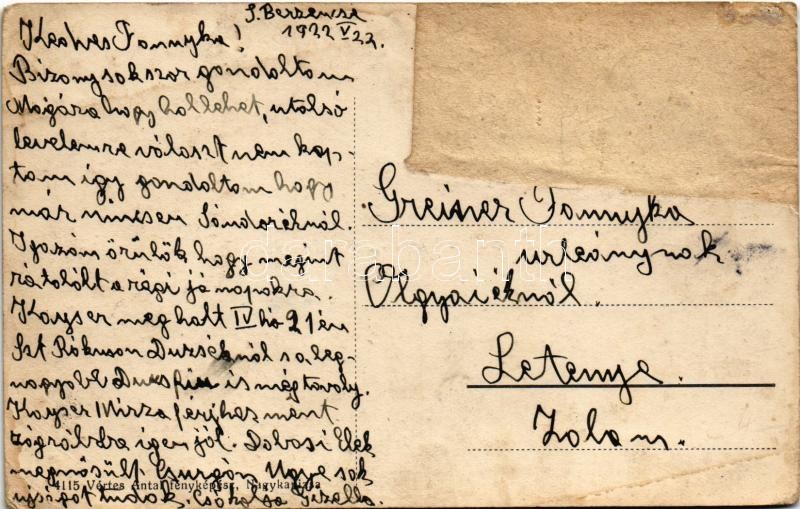 S. Berzencze
1922 V 22.
Kedves Fannyka!
Bizony sokszor gondoltam
Magára hogy hol lehet, utolsó
levelemre választ nem kap-
tam így gondoltam hogy
már nincsen Sándoréknál.
Igazán örülök hogy megint
rátalált a régi jó napokra.
Kayser meghalt IV hó 21 én
Szt Rókuson Duzséknál s a leg-
nagyobb fiu is még tavaly.
Kayser Mirza férjhez ment
zágrábba igen jól. Dobosi Elek
megnősült Csurgón Ugye sok
ujságot tudok. Csókolja Gizella.
Greiner Fannyka
urleánynak
Olgyaiéknál.
Letenye.
Zala m.
4115 Vértes Antal fényképész, Nagykanizsa
darabanth